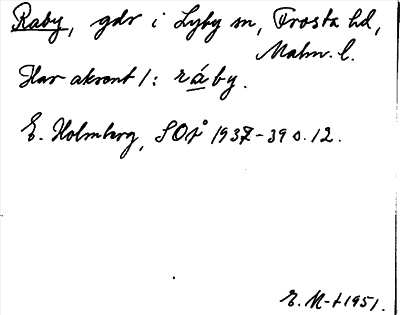 Raby, gdr i Lyby sn, Frosta hd,
Malm. l.
Har akcent 1: ráby.
E. Holmberg, SOÅ 1937-39 s. 12.
E. M-t 1951.